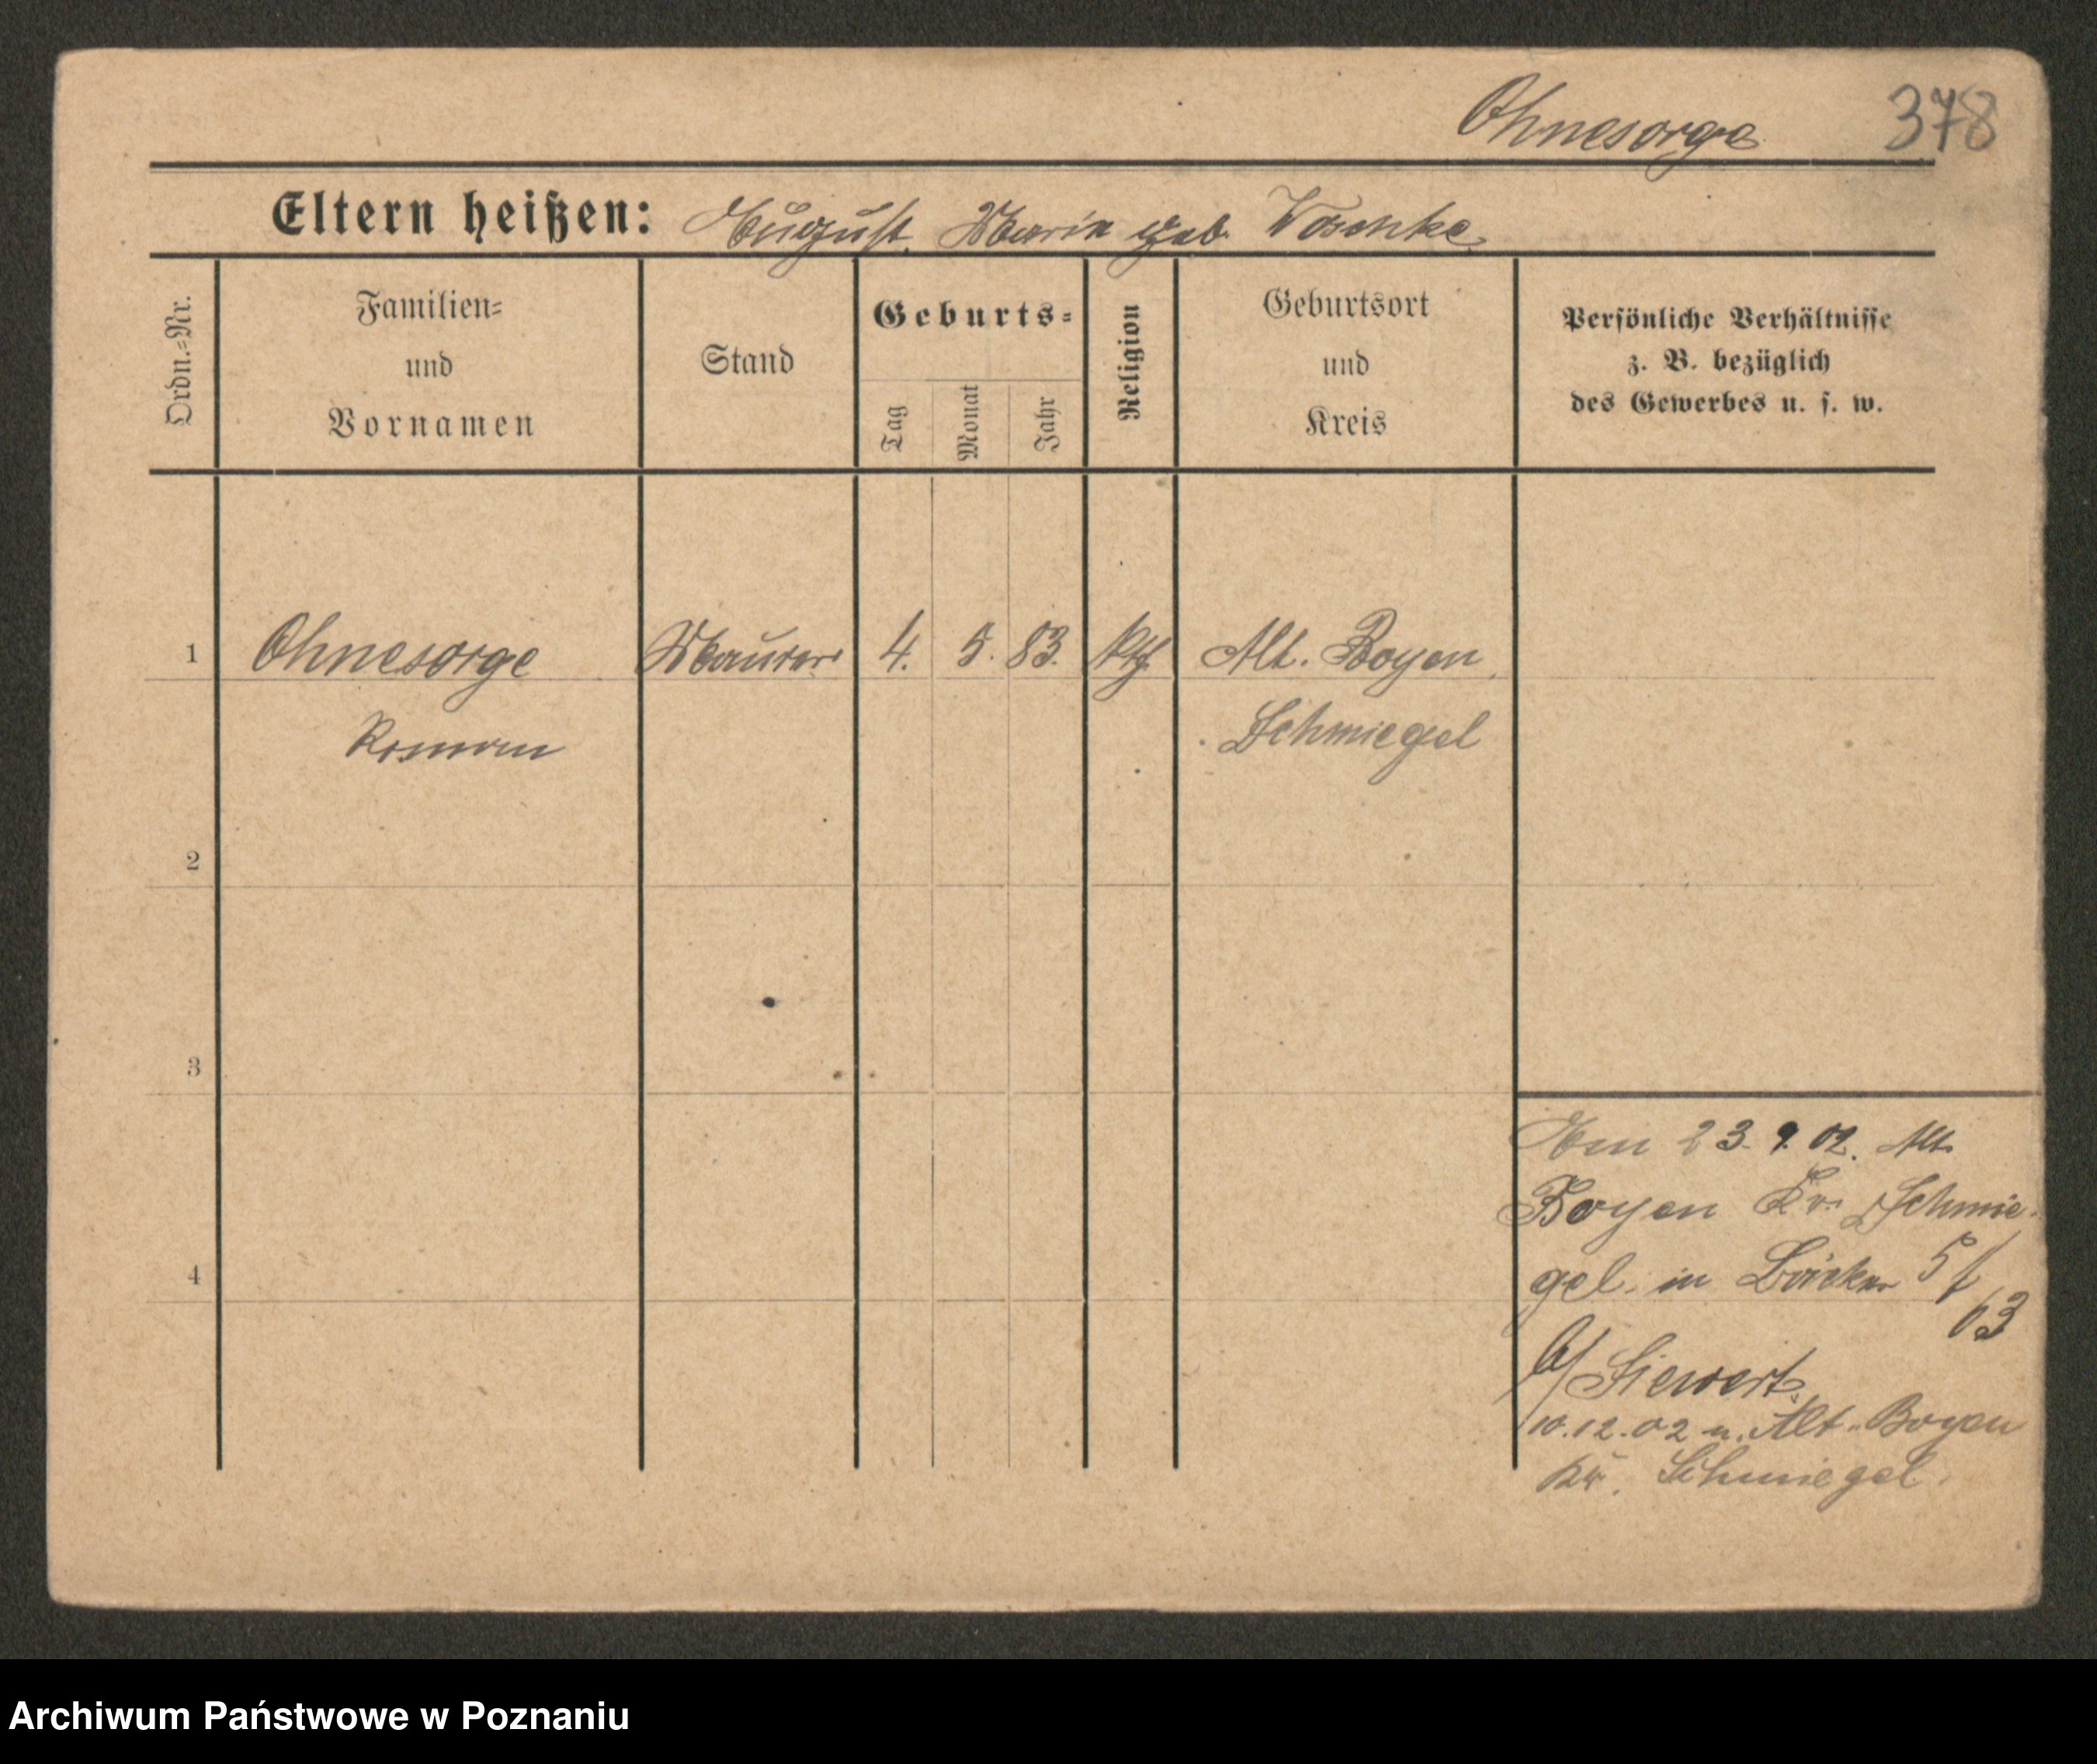 Ohnesorge 378
Eltern heißen: August, Maria geb. Woschke
Ordn.-Nr.
Familien-
und
Vornamen
Stand
Geburts-
Tag
Monat
Jahr
Religion
Geburtsort
und
Kreis
Persönliche Verhältnisse
z. B. bezüglich
des Gewerbes u. s. w.
1 Ohnesorge Maurer 4. 5. 83. kth. Alt. Boyen
Roman Schmiegel
2
3
Am 23. 9. 02. Alt
Boyen Kr. Schmie-
4 gel. in
63
b/ Siewert
10.12.02 n. Alt-Boyen
Kr. Schmiegel.
Archiwum Państwowe w Poznaniu